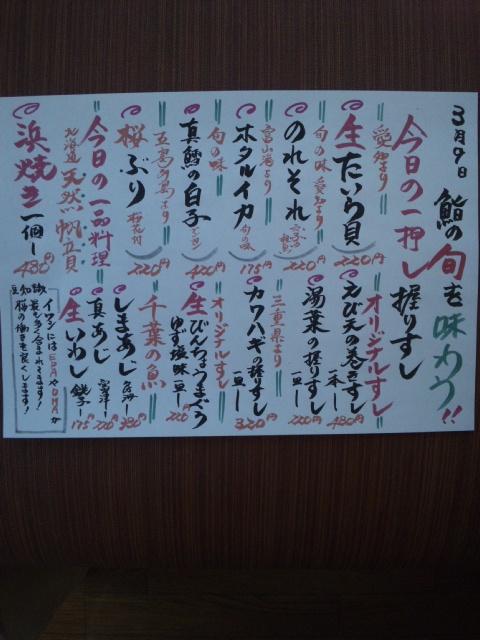 3月9日
鮨の旬を味わう!!
今日の一押し握りすし
愛知より
生たいら貝
220円
旬の味 愛知より
のれそれ
220円
富山湾より
ホタルイカ 旬の味
175円
旬の味
真鱈の白子
420円
五島列島より
桜ぶり 桜花付
220円
今日の一品料理
北海道 天然帆立貝
浜焼き 一個 430円
オリジナルすし
えび天の巻きすし
一本 480円
湯葉の握りすし
一皿 220円
三重県より
カワハギの握りすし
一皿 320円
オリジナルすし
生びんちょうまぐろ
ゆず塩味 一皿 220円
千葉の魚
しまあじ 380円
真あじ 220円
生いわし 銚子 175円
豆知識
イワシにはEPAやDHAが
最も多く含まれてます!
脳の働きを良くします!